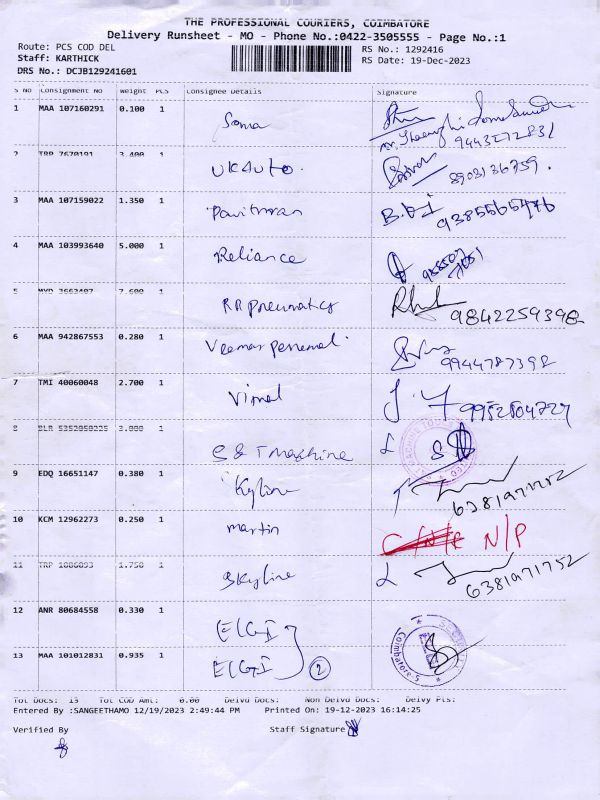 THE PROFESSIONAL COURIERS, COIMBATORE
Delivery Runsheet - MO - Phone No.:0422-3505555 - Page No.:1
Route: PCS COD DEL RS No.: 1292416
Staff: KARTHICK RS Date: 19-Dec-2023
DRS No.: DCJB129241601
S No Consignment No Weight PCS Consignee Details Signature
1 MAA 107160291 0.100 1 Soma
9443272831
2 TRP 7670191 3.400 1 UK Auto. 8903136759.
3 MAA 107159022 1.350 1 Pavithran 9385565476
4 MAA 103993640 5.000 1 Reliance
5 7.600 1 RR pneumatics 9842259398
6 MAA 942867553 0.280 1 9944787392
7 TMI 40060048 2.700 1 Vimal 9952604727
8 BLR 1 S & T Machine
9 EDQ 16651147 0.380 1 Skyline 6381971752
10 KCM 12962273 0.250 1 martin N/P
11 TRP 1.750 1 Skyline 6381971752
12 ANR 80684558 0.330 1 ELGI
13 MAA 101012831 0.935 1 ELGI 2
Coimbatore-5
Tot Docs: 13 Tot COD Amt: 0.00 Delvd Docs: Non Delvd Docs: Delvy Pts:
Entered By :SANGEETHAMO 12/19/2023 2:49:44 PM Printed On: 19-12-2023 16:14:25
Verified By Staff Signature